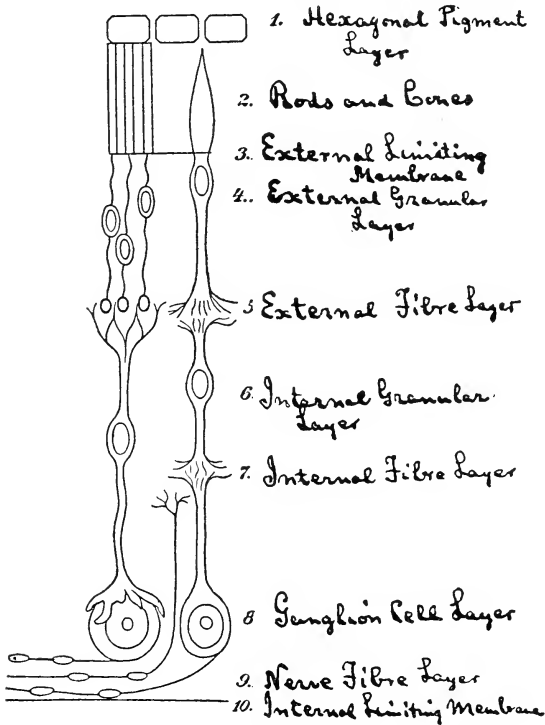 1. Hexagonal Pigment
Layer
2. Rods and Cones
3. External Limiting
Membrane
4. External Granular
Layer
5 External Fibre Layer
6. Internal Granular
Layer
7. Internal Fibre Layer
8 Ganglion Cell Layer
9. Nerve Fibre Layer
10. Internal Limiting Membrane